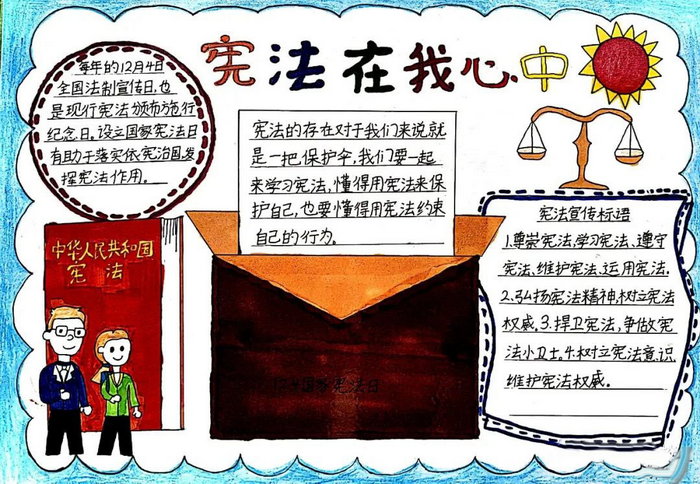 宪法在我心中
每年的12月4日
全国法制宣传日,也
是现行宪法颁布施行
纪念日。设立国家宪法日
有助于落实依宪治国发
挥宪法作用。
宪法的存在对于我们来说就
是一把保护伞,我们要一起
来学习宪法、懂得用宪法来保
护自己,也要懂得用宪法约束
自己的行为。
宪法宣传标语
1.尊崇宪法、学习宪法、遵守
宪法、维护宪法、运用宪法.
2.弘扬宪法精神,树立宪法
权威.3.捍卫宪法,争做宪
法小卫士.4.树立宪法意识
维护宪法权威。
中华人民共和国
宪法
国家宪法日